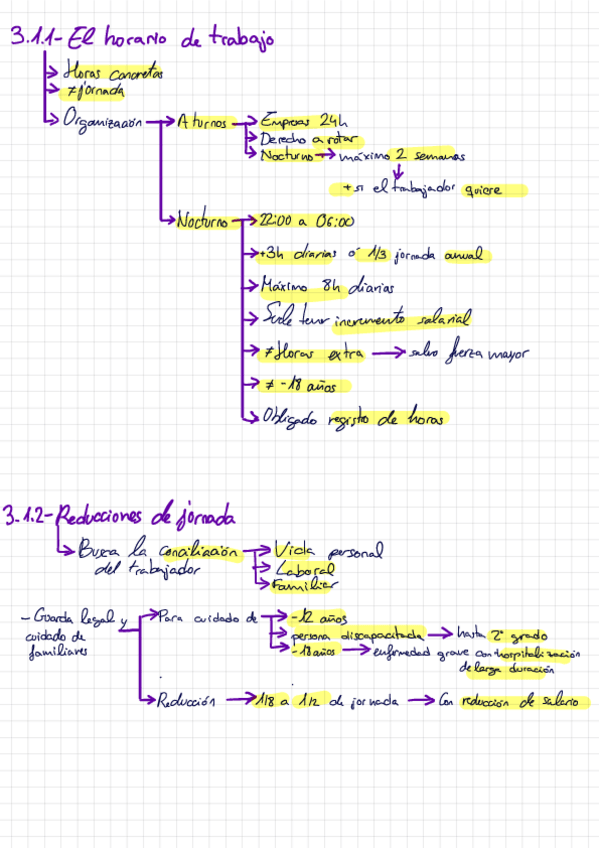 3.1.1- El horario de trabajo
Horas concretas
≠ jornada
Organización → A turnos → Empresas 24h
Derecho a rotar
Nocturno → máximo 2 semanas
+ si el trabajador quiere
Nocturno → 22:00 a 06:00
+3h diarias ó 1/3 jornada anual
Máximo 8h diarias
Suele tener incremento salarial
≠ Horas extra → salvo fuerza mayor
≠ -18 años
Obligado registro de horas
3.1.2- Reducciones de jornada
Busca la conciliación → Vida personal
del trabajador
Laboral
Familiar
- Guarda legal y
cuidado de
familiares
Para cuidado de → -12 años
persona discapacitada → hasta 2º grado
-18 años → enfermedad grave con hospitalización
de larga duración
Reducción → 1/8 a 1/2 de jornada → Con reducción de salario